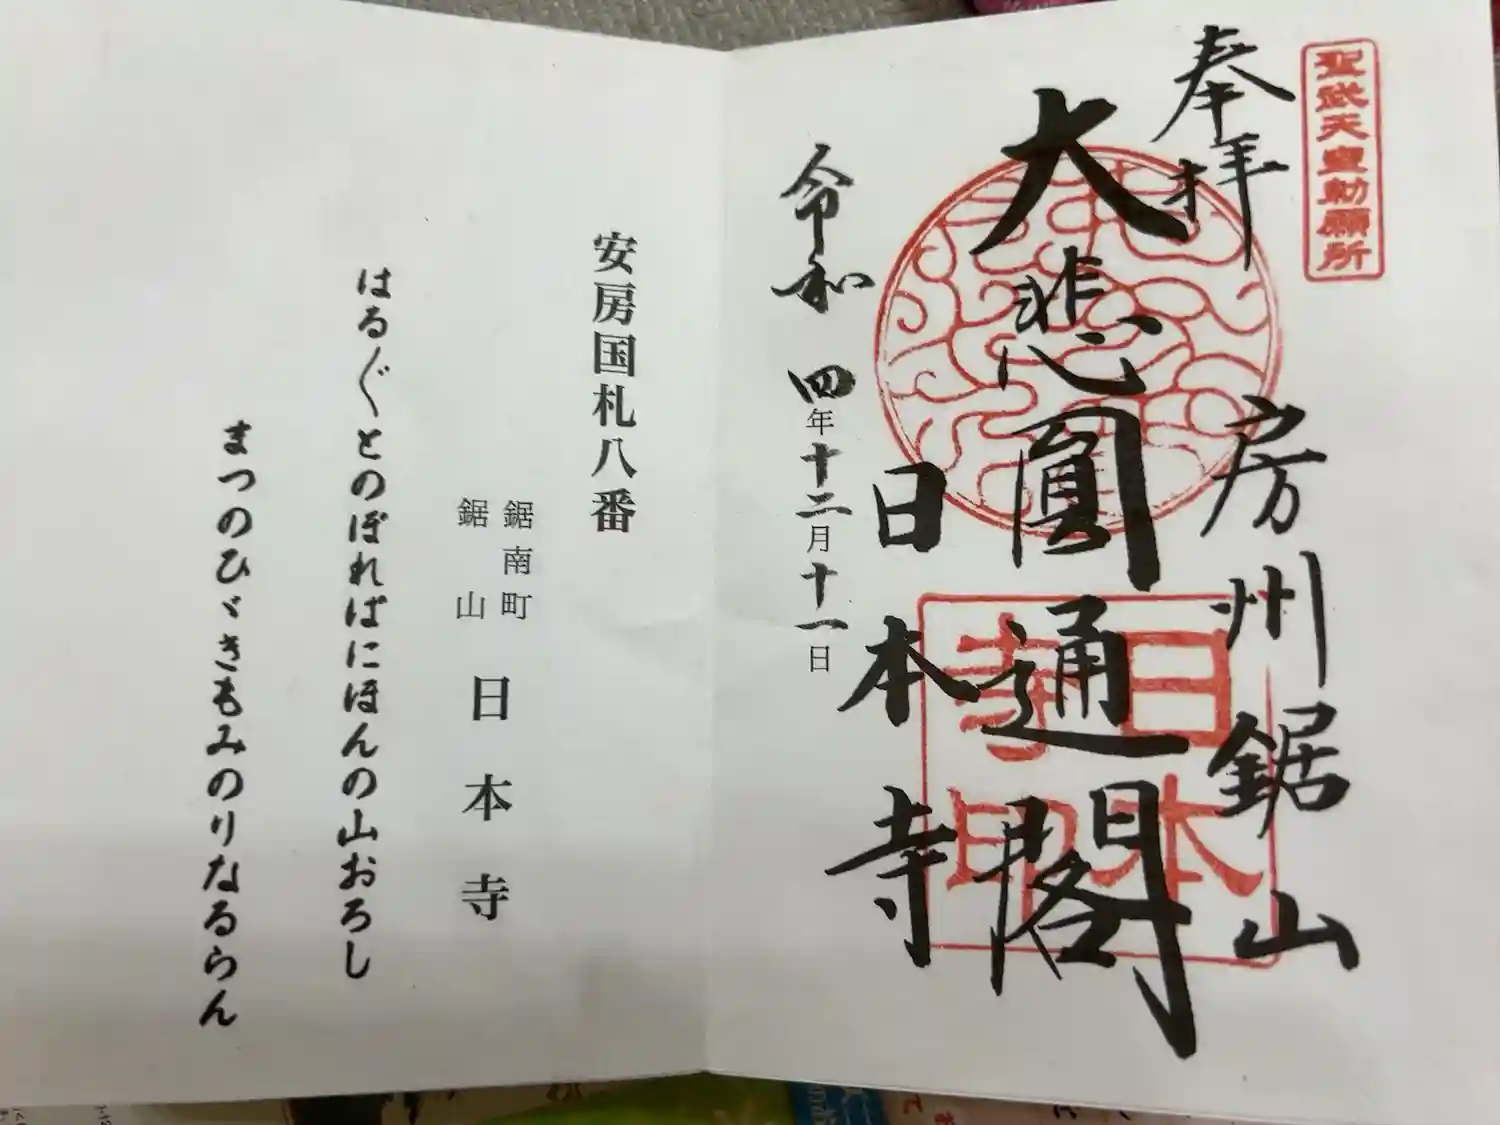 聖武天皇勅願所
奉拝
房州鋸山
大悲圓通閣
日本寺
日本寺印
令和四年十二月十一日
安房国札八番
鋸南町
鋸山
日本寺
はる〴〵とのぼればにほんの山おろし
まつのひゞきもみのりなるらん